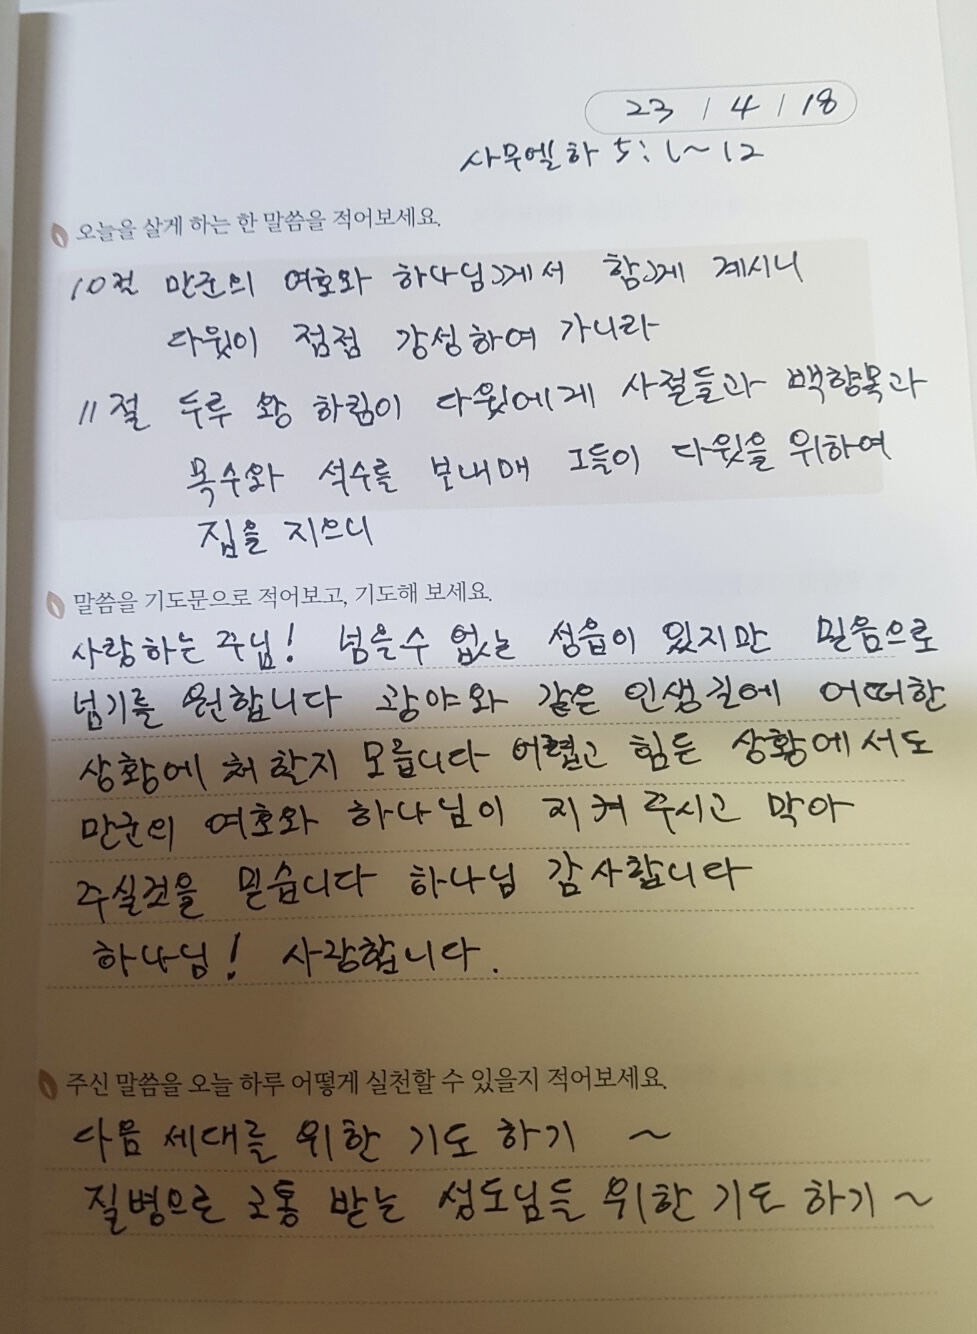 23 / 4 / 18
사무엘하 5:1~12
오늘을 살게 하는 한 말씀을 적어보세요.
10절 만군의 여호와 하나님께서 함께 계시니
다윗이 점점 강성하여 가니라
11절 두루 왕 히람이 다윗에게 사절들과 백향목과
목수와 석수를 보내매 그들이 다윗을 위하여
집을 지으니
말씀을 기도문으로 적어보고, 기도해 보세요.
사랑하는 주님! 넘을수 없는 성읍이 있지만 믿음으로
넘기를 원합니다 광야와 같은 인생길에 어떠한
상황에 처할지 모릅니다 어렵고 힘든 상황에서도
만군의 여호와 하나님이 지켜주시고 막아
주실것을 믿습니다 하나님 감사합니다
하나님! 사랑합니다.
주신 말씀을 오늘 하루 어떻게 실천할 수 있을지 적어보세요.
다음 세대를 위한 기도 하기 ~
질병으로 고통 받는 성도님들 위한 기도 하기~